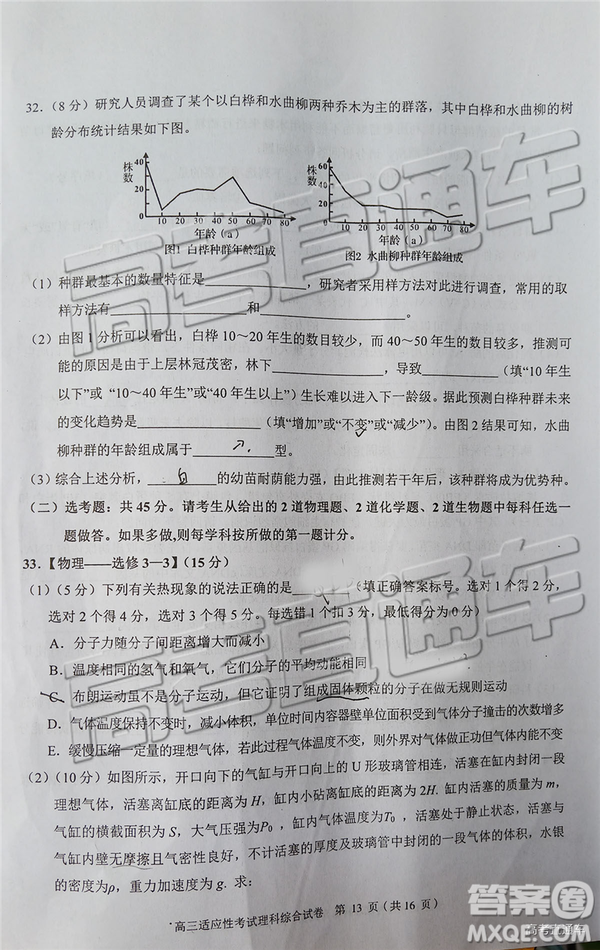 32.（8 分）研究人员调查了某个以白桦和水曲柳两种乔木为主的群落，其中白桦和水曲柳的树
龄分布统计结果如下图。
株数 40 20 0 10 20 30 40 50 60 70 80
年龄（a）
图1 白桦种群年龄组成
株数 60 40 20 0 10 20 30 40 50 60 70 80
年龄（a）
图2 水曲柳种群年龄组成
（1）种群最基本的数量特征是____________，研究者采用样方法对此进行调查，常用的取
样方法有____________和____________。
（2）由图 1 分析可以看出，白桦 10～20 年生的数目较少，而 40～50 年生的数目较多，推测可
能的原因是由于上层林冠茂密，林下____________，导致____________（填“10 年生
以下”或 “10～40 年生”或“40 年生以上”）生长难以进入下一龄级。据此预测白桦种群未来
的变化趋势是____________（填“增加”或“不变”或“减少”）。由图 2 结果可知，水曲
柳种群的年龄组成属于____________型。
（3）综合上述分析，____________的幼苗耐荫能力强，由此推测若干年后，该种群将成为优势种。
（二）选考题：共 45 分。请考生从给出的 2 道物理题、2 道化学题、2 道生物题中每科任选一
题做答。如果多做,则每学科按所做的第一题计分。
33.【物理——选修 3—3】（15 分）
（1）（5 分）下列有关热现象的说法正确的是____________（填正确答案标号。选对 1 个得 2 分，
选对 2 个得 4 分，选对 3 个得 5 分。每选错 1 个扣 3 分，最低得分为 0 分）
A．分子力随分子间距离增大而减小
B．温度相同的氢气和氧气，它们分子的平均动能相同
C．布朗运动虽不是分子运动，但它证明了组成固体颗粒的分子在做无规则运动
D．气体温度不变时，减小体积，单位时间内容器壁单位面积上受到气体分子撞击的次数增多
E．缓慢压缩一定量的理想气体，若此过程气体温度不变，则外界对气体做正功但气体内能不变
（2）（10 分）如图所示，开口向下的气缸与开口向上的 U 形玻璃管相连，活塞在缸内封闭一段
理想气体，活塞离缸底的距离为 H，缸内小砧离缸底的距离为 2H. 缸内活塞的质量为 m，
气缸的横截面积为 S，大气压强为P0 ，缸内气体的温度为T0 ，活塞处于静止状态，活塞与
气缸壁无摩擦且气密性良好，不计活塞的厚度及玻璃管中封闭的一段气体的体积，水银
的密度为ρ,重力加速度为 g. 求:
高三适应性考试理科综合试卷 第 13 页（共 16 页）
高考直通车
高考直通车
答案圈
高考直通车